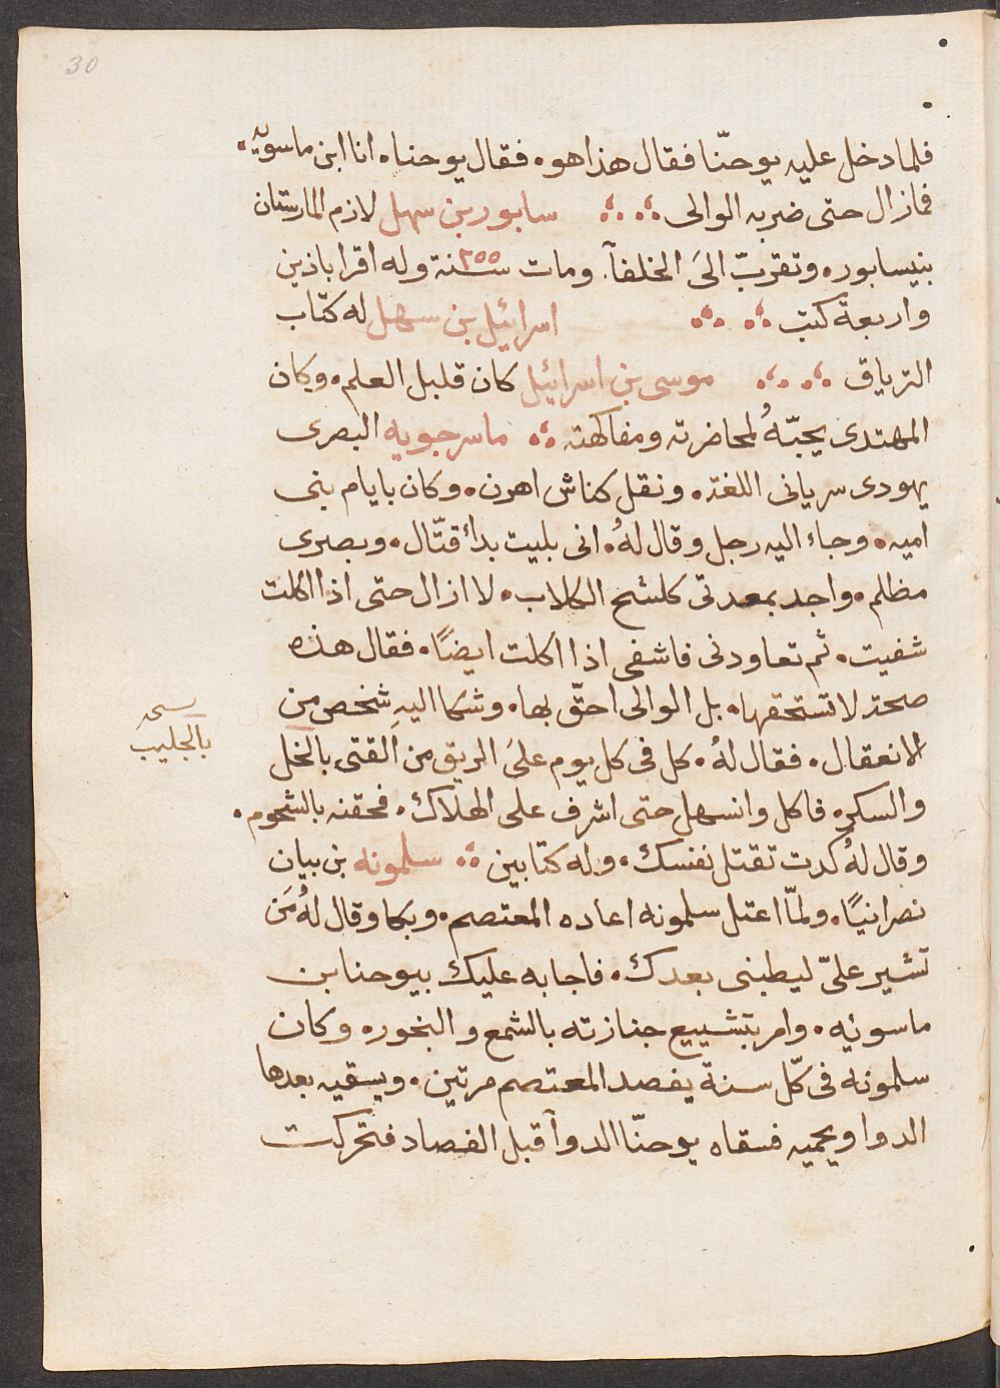 30
فلما دخل عليه يوحنّا فقال هذا هو، فقال يوحنا، انا ابن ماسويه،
فمازال حتى ضربه الوالى سابور بن سهل لازم المارستان
بنيسابور، وتقربّ الىَ الخلفآ، ومات سنة ٢٥٥ وله اقراباذين
واربعة كتب اسرائيل بن سهل له كتاب
الترياق موسى بن اسرائيل كان قليل العلم، وكان
المهتدى يحبّهُ لمحاضرته ومفاكهته ماسرجويه البصرى
يهودى سريانى اللغة، ونقل كناش اهرن، وكان بايام بنى
اميه، وجاء اليه رجل وقال لهُ، انى بليت بداء قتّال، وبصرى
مظلم، واجد بمعدتى كلشح الكلاب، لا ازال حتى اذا اكلت
شفيت، ثم تعاودنى فاشفى اذا اكلت ايضًا، فقال هذه
صحة لا تستحقها، بل الوالى احقّ بها، وشكا اليهِ شخص من
الانعقال، فقال لهُ، كل فى كل يوم علىَ الريق من القتى بالخل
بالجليب
والسكر، فاكل وانسهل حتى اشرف على الهلاك، فحقنه بالشحوم،
وقال لهُ كدت تقتل نفسك، وله كتابين سلمونه بن بيان
نصرانيًا، ولمّا اعتل سلمونه اعاده المعتصم، وبكا وقال لهُ مَن
تشير علىّ ليطبنى بعدك، فاجابه عليك بيوحنا بن
ماسويه، وامر بتشييع جنازته بالشمع والبخور، وكان
سلمونه فى كلّ سنة يفصد المعتصم مرتين، ويسقيه بعدها
الدوا ويحميه فسقاه يوحنّا الدوآ قبل الفصاد فتحركت